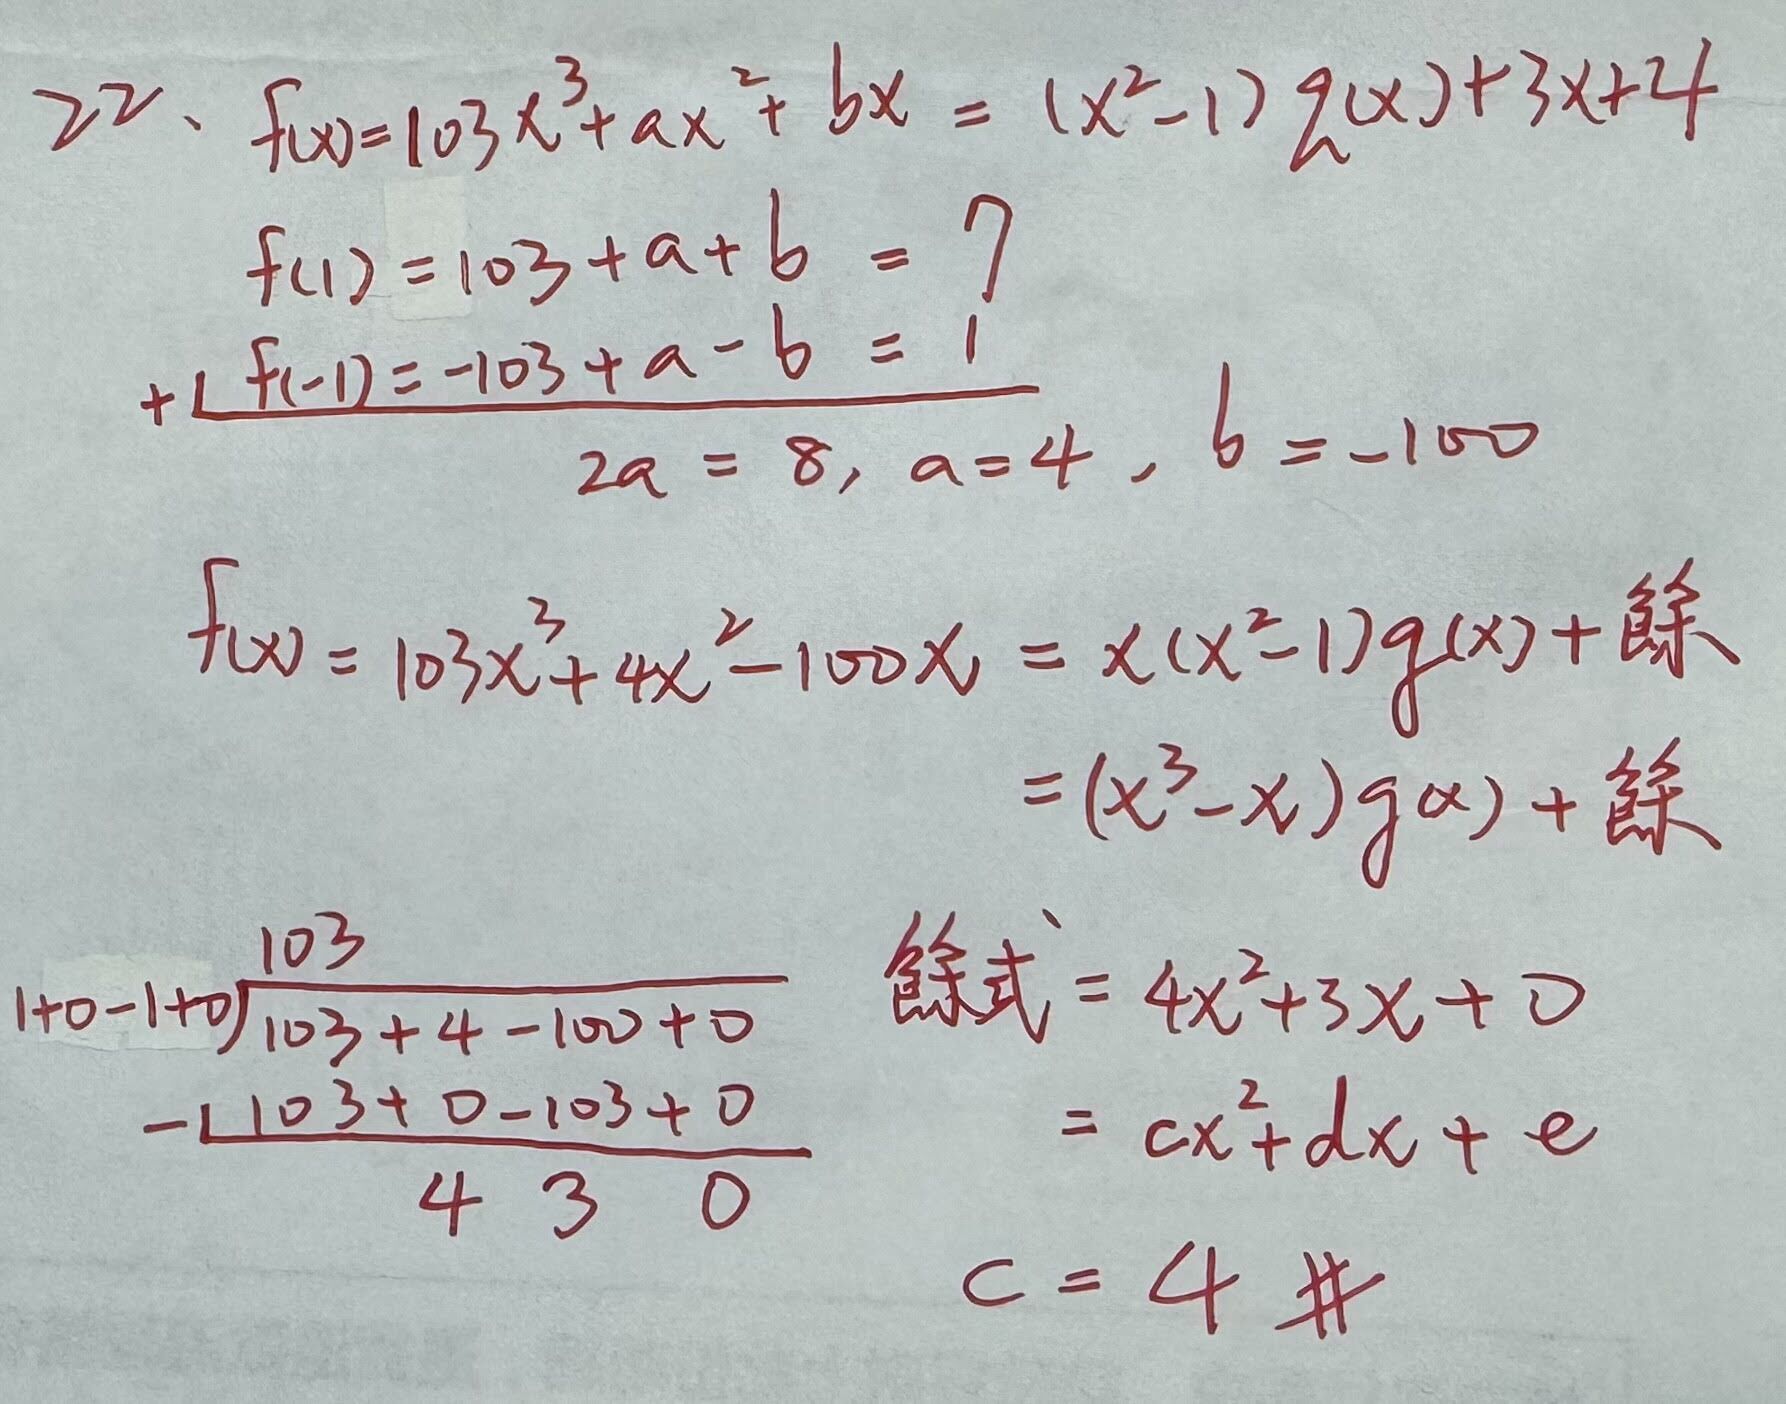 22、f(x)=103x³+ax²+bx = (x²-1)q(x)+3x+4
f(1)=103+a+b = 7
+⌊f(-1)=-103+a-b = 1
2a = 8, a=4, b=-100
f(x)=103x³+4x²-100x = x(x²-1)g(x)+餘
=(x³-x)g(x)+餘
103
1+0-1+0)103+4-100+0
-⌊103+0-103+0
4 3 0
餘式=4x²+3x+0
=cx²+dx+e
c=4 #